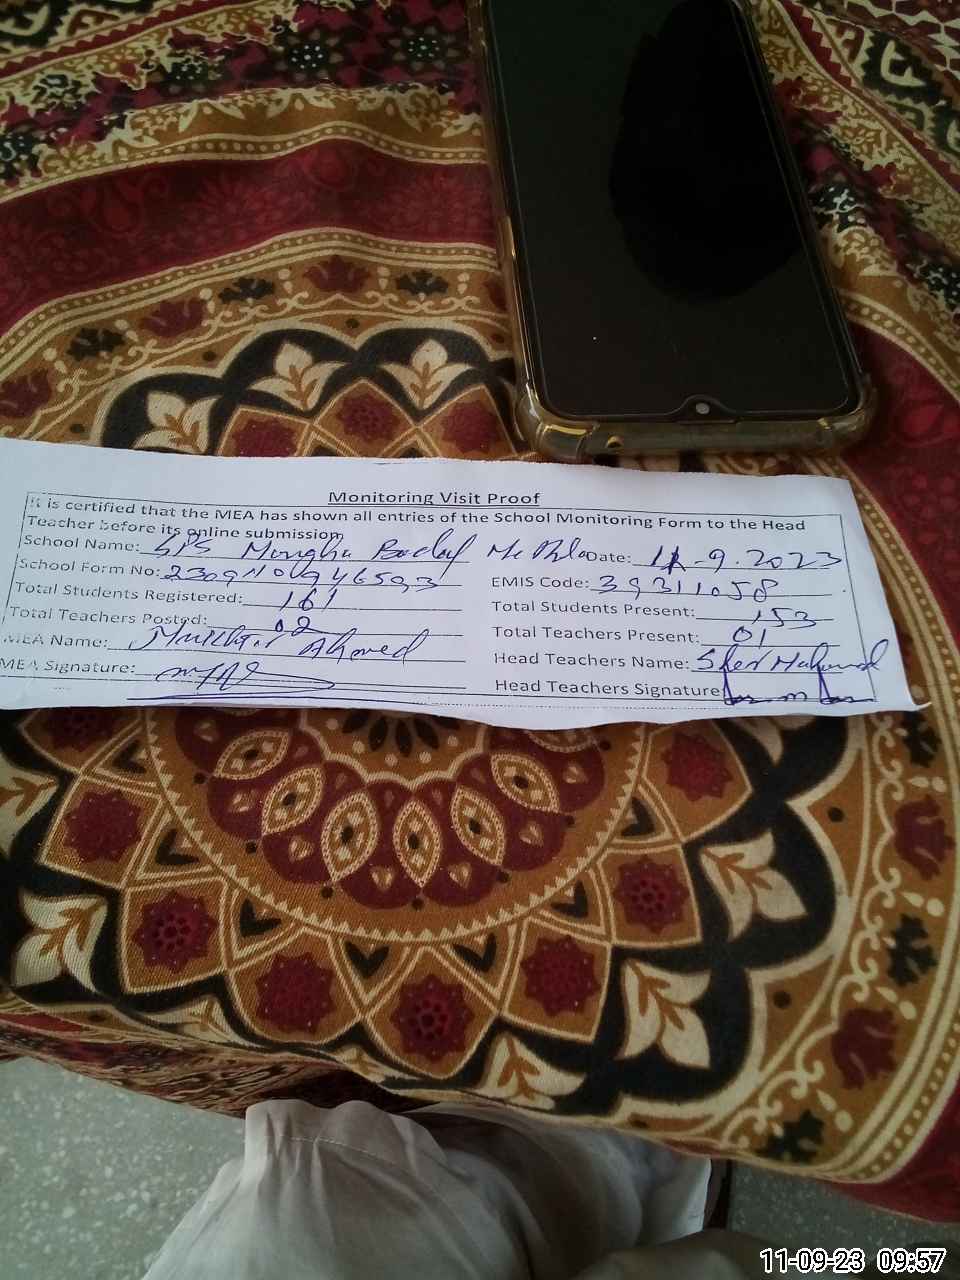 Monitoring Visit Proof
It is certified that the MEA has shown all entries of the School Monitoring Form to the Head
Teacher before its online submission
School Name: GPS Mongha Date: 11-9-2023
School Form No: EMIS Code: 39311058
Total Students Registered: 161 Total Students Present: 153
Total Teachers Posted: 02 Total Teachers Present: 01
MEA Name: Ahmed Head Teachers Name: Sher Muhammad
MEA Signature: Head Teachers Signature
11-09-23 09:57